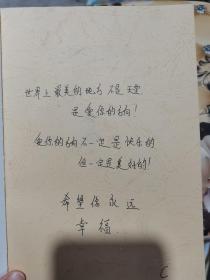 世界上最美的地方不是天堂
是爱你的方向！
爱你的方向不一定是快乐的
但一定是美好的！
希望你永远
幸福